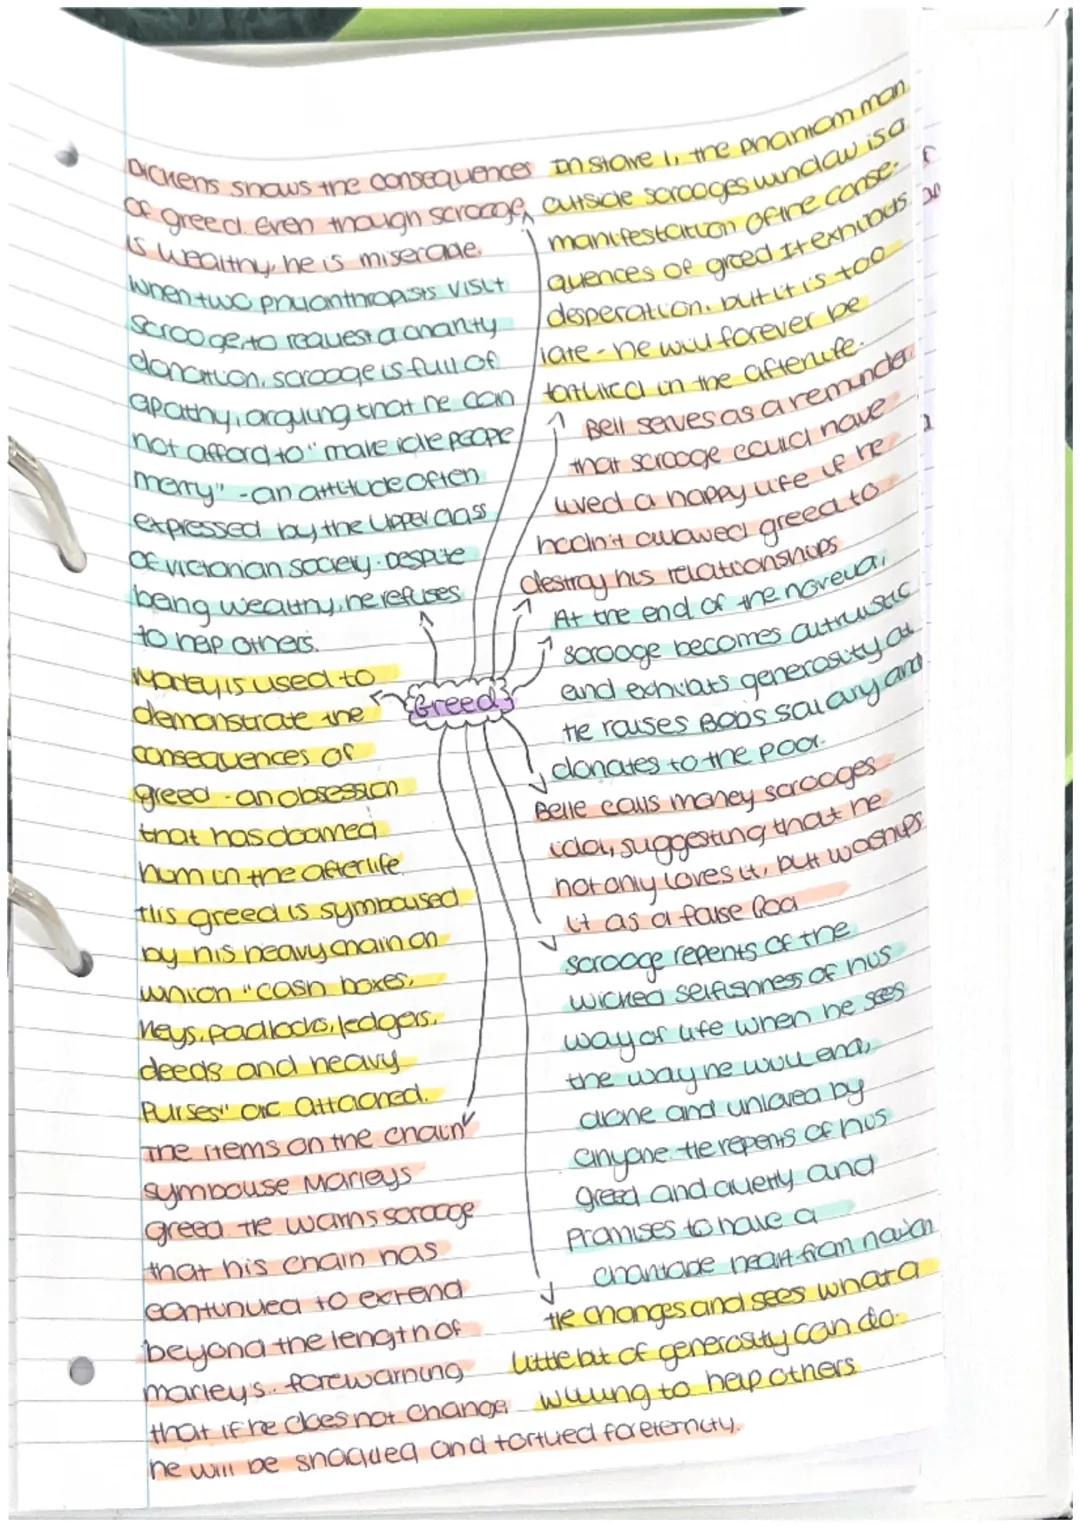 Dickens shows the consequences
of greed. Even though scrooge
is wealthy, he is miserable.
When two philanthropists visit
scrooge, to request a charity
donation, scrooge is full of
apathy, arguing that he can
not afford to "make idle people
merry" - an attitude often
expressed by the upper class
of victorian society. Despite
being wealthy, he refuses
to help others.
Marley is used to
demonstrate the
consequences of
greed - an obsession
that has doomed
him in the afterlife.
His greed is symbolised
by his heavy chain on
which "cash boxes,
keys, padlocks, ledgers,
deeds and heavy
purses" are attached.
The items on the chain
symbolise Marleys
greed. He warns scrooge
that his chain has
continued to extend
beyond the length of
marley's. forewarning
that if he does not change
he will be shaqued and tortued for eternity.
Greed
In stave 1, the phantom man
outside scrooges window is a
manifestation of the conse-
quences of greed It exhibits
desperation. but it is too
late - he will forever be
tortured in the afterlife.
Bell serves as a reminder
that scrooge could have
lived a happy life if he
hadn't allowed greed to
destroy his relationships
At the end of the novella,
scrooge becomes altruistic
and exhibits generosity at
He raises Bobs salary and
donates to the poor.
Belle calls money scrooges
idol, suggesting that he
not only loves it, but woships
it as a false God
scrooge repents of the
wicked selfishness of his
way of life when he sees
the way he will end,
alone and unloved by
anyone. He repents of his
greed and and
promises to have a
heart from
He changes and sees what a
little bit of generosity can do.
willing to help others